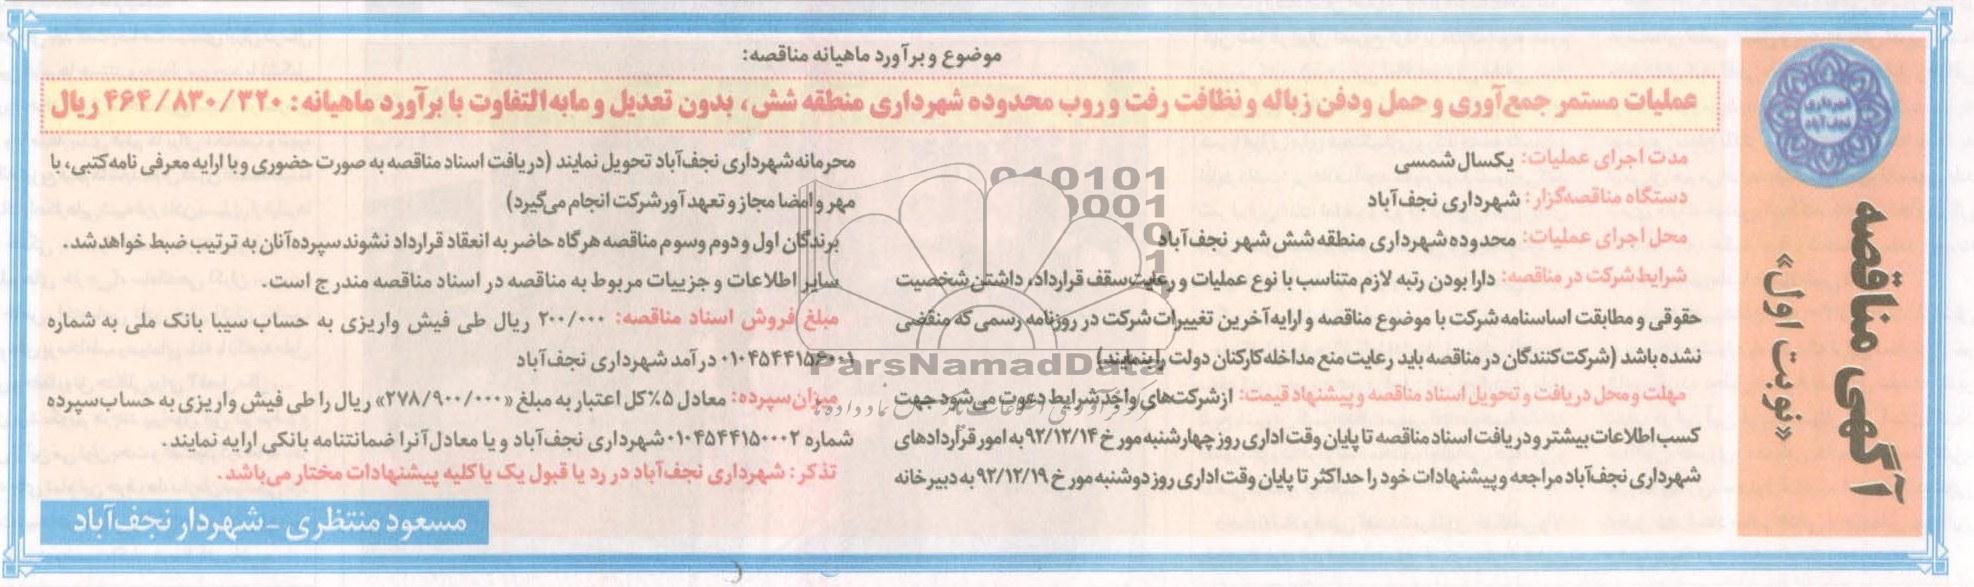 آگهی مناقصه
«نوبت اول»
شهرداری
نجف آباد
موضوع و برآورد ماهیانه مناقصه:
عملیات مستمر جمع‌آوری و حمل ودفن زباله و نظافت رفت و روب محدوده شهرداری منطقه شش، بدون تعدیل و مابه‌التفاوت با برآورد ماهیانه: ۴۶۴/۸۳۰/۳۲۰ ریال
مدت اجرای عملیات: یکسال شمسی
دستگاه مناقصه‌گزار: شهرداری نجف‌آباد
محل اجرای عملیات: محدوده شهرداری منطقه شش شهر نجف‌آباد
شرایط شرکت در مناقصه: دارا بودن رتبه لازم متناسب با نوع عملیات و رعایت سقف قرارداد، داشتن شخصیت
حقوقی و مطابقت اساسنامه شرکت با موضوع مناقصه و ارایه آخرین تغییرات شرکت در روزنامه رسمی که منقضی
نشده باشد (شرکت‌کنندگان در مناقصه باید رعایت منع مداخله کارکنان دولت را بنمایند)
مهلت و محل دریافت و تحویل اسناد مناقصه و پیشنهاد قیمت: از شرکت‌های واجد شرایط دعوت می‌شود جهت
کسب اطلاعات بیشتر و دریافت اسناد مناقصه تا پایان وقت اداری روز چهارشنبه مورخ ۹۲/۱۲/۱۴ به امور قراردادهای
شهرداری نجف‌آباد مراجعه و پیشنهادات خود را حداکثر تا پایان وقت اداری روز دوشنبه مورخ ۹۲/۱۲/۱۹ به دبیرخانه
محرمانه شهرداری نجف‌آباد تحویل نمایند (دریافت اسناد مناقصه به صورت حضوری و با ارایه معرفی نامه کتبی، با
مهر و امضا مجاز و تعهدآور شرکت انجام می‌گیرد)
برندگان اول و دوم وسوم مناقصه هر گاه حاضر به انعقاد قرارداد نشوند سپرده آنان به ترتیب ضبط خواهد شد.
سایر اطلاعات و جزییات مربوط به مناقصه در اسناد مناقصه مندرج است.
مبلغ فروش اسناد مناقصه: ۲۰۰/۰۰۰ ریال طی فیش واریزی به حساب سیبا بانک ملی به شماره
درآمد شهرداری نجف‌آباد
میزان سپرده: معادل ۵٪ کل اعتبار به مبلغ «۲۷۸/۹۰۰/۰۰۰» ریال را طی فیش واریزی به حساب سپرده
شماره ۰۱۰۴۵۴۴۱۵۰۰۰۲ شهرداری نجف‌آباد و یا معادل آنرا ضمانتنامه بانکی ارایه نمایند.
تذکر: شهرداری نجف‌آباد در رد یا قبول یک یا کلیه پیشنهادات مختار می‌باشد.
مسعود منتظری - شهردار نجف‌آباد
ParsNamadData